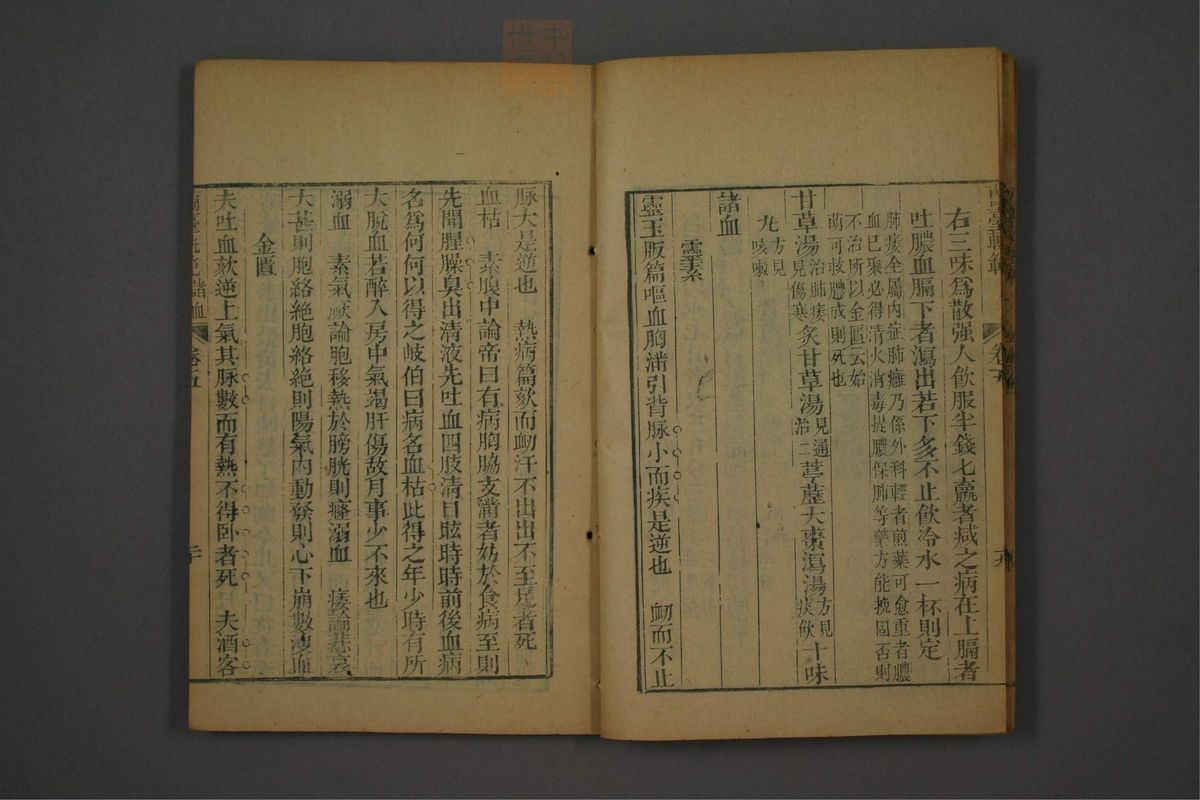 右三味為散强人飲服半錢七羸者减之病在上膈者
吐膿血膈下者瀉出若下多不止飲冷水一杯則定
肺痿全屬内症肺癰乃係外科輕者煎藥可愈重者膿
血已聚必得清火消毒提膿保肺等藥方能挽囬否則
不治所以金匱云始
萌可救膿成則死也
甘草湯治肺痿見傷寒 炙甘草湯見通治二 葶藶大棗瀉湯方見痰飲 十味
丸方見咳嗽
諸血
靈素
靈玉版篇嘔血胸滿引背脉小而疾是逆也 衂而不止
卷五
脉大是逆也 熱病篇欬而衂汗不出出不至足者死
血枯 素腹中論帝曰有病胸脇支滿者妨於食病至則
先聞腥臊臭出清液先吐血四肢清目眩時時前後血病
名為何何以得之岐伯曰病名血枯此得之年少時有所
大脫血若醉入房中氣竭肝傷故月事少不來也
溺血 素氣厥論胞移熱於膀胱則癃溺血 痿論悲哀
大甚則胞絡絶胞絡絶則陽氣内動發則心下崩數溲血
金匱
夫吐血欬逆上氣其脉數而有熱不得卧者死 夫酒客
諸血 卷五 二十